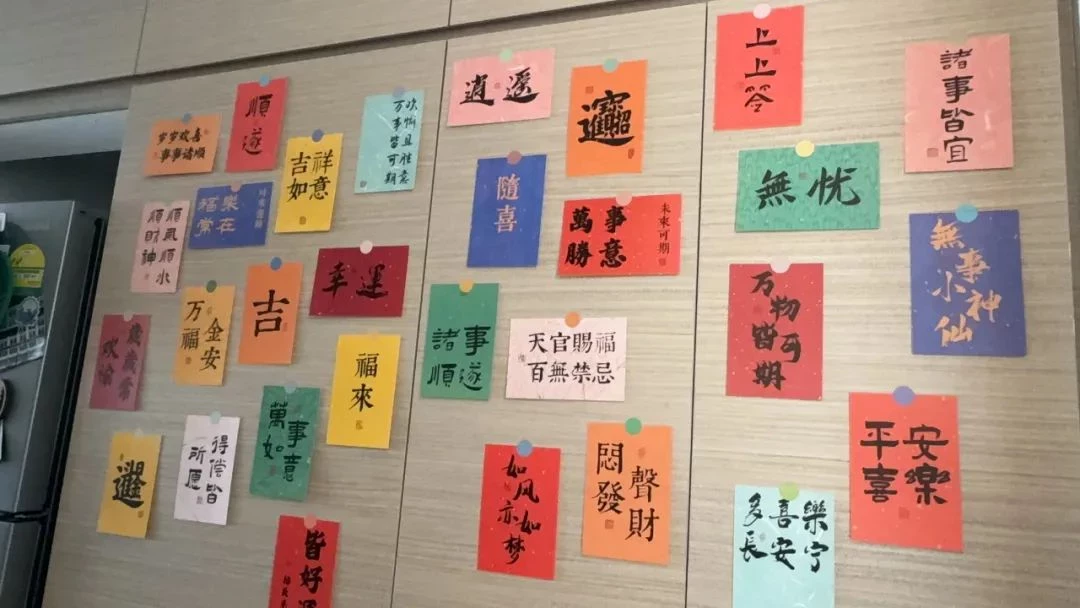 岁岁欢喜
事事诸顺
順遂
吉祥
如意
吹惭且胜意
万事皆可期
樂在
福常
順風順水
順財神
万福
金安
吉
幸運
歲歲常
欢愉
福來
萬事
如意
得偿皆
所愿
皆好運
逍遥
隨喜
萬事
勝意
未來可期
諸事
順遂
天官賜福
百無禁忌
如风如
亦梦
悶聲
發財
上上签
諸事皆宜
無忧
万物
皆可
期
無事
小神
仙
平安
喜樂
多喜樂
長安宁